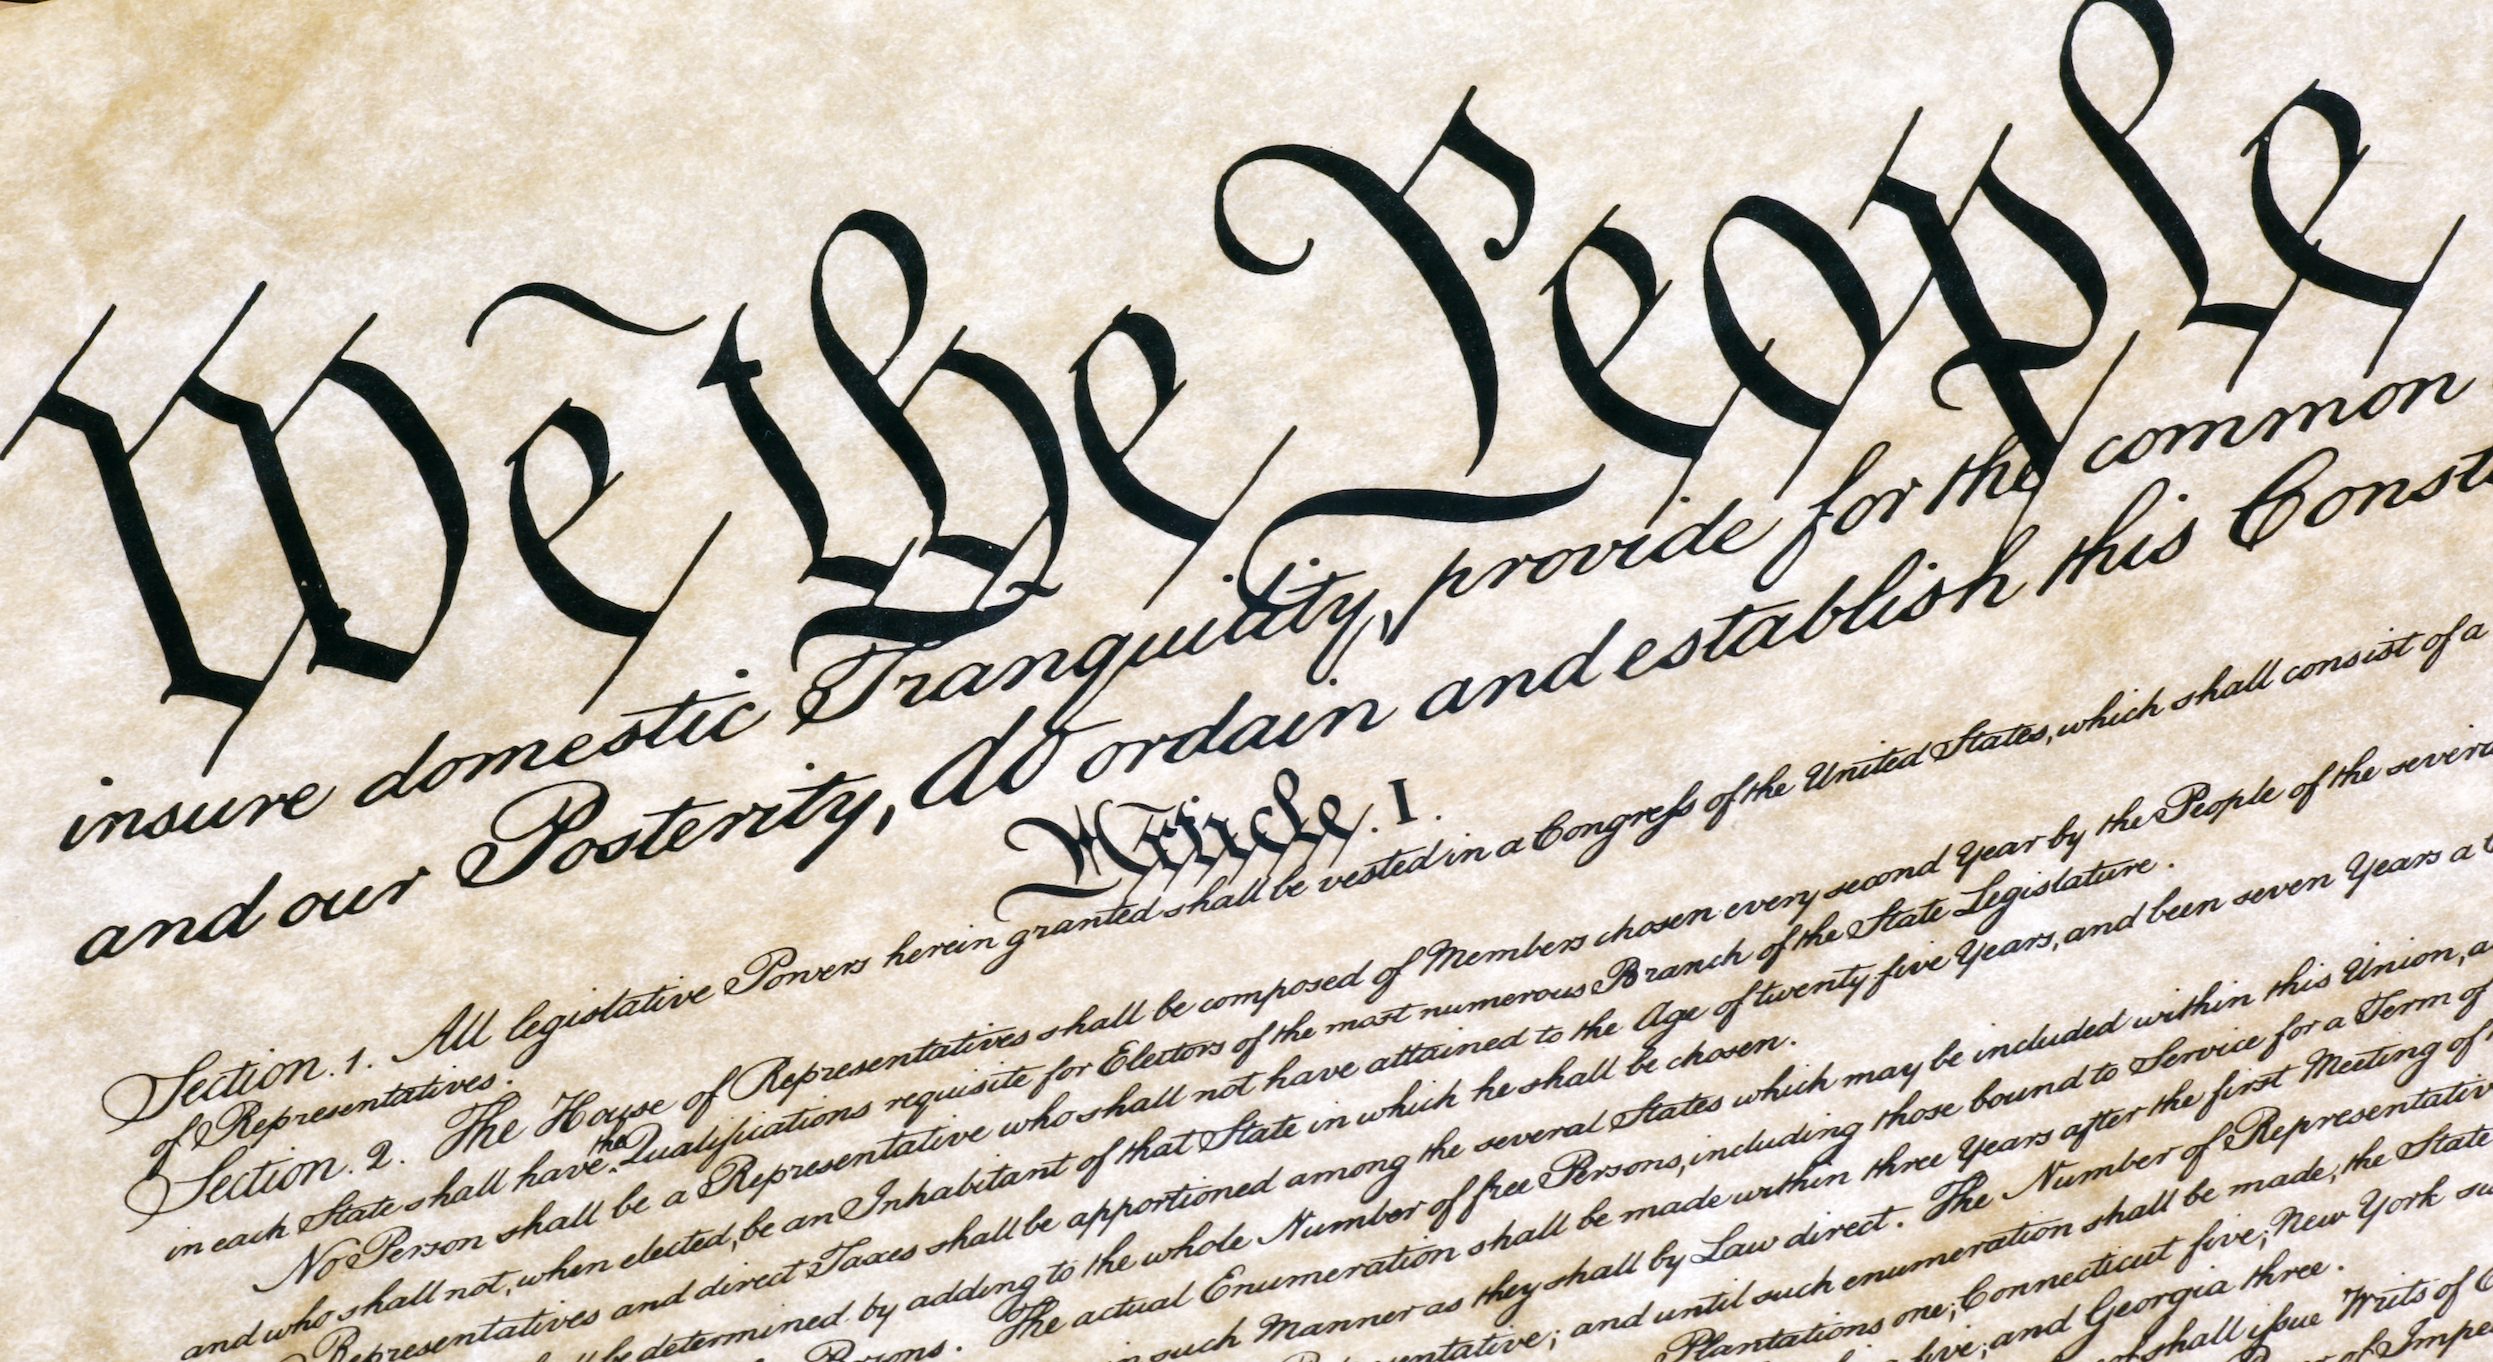 We the People
insure domestic Tranquility, provide for the common
and our Posterity, do ordain and establish this Const
Article. I.
Section. 1. All legislative Powers herein granted shall be vested in a Congress of the United States, which shall consist of a
of Representatives.
Section. 2. The House of Representatives shall be composed of Members chosen every second Year by the People of the severa
in each State shall have the Qualifications requisite for Electors of the most numerous Branch of the State Legislature.
No Person shall be a Representative who shall not have attained to the Age of twenty five Years, and been seven Years a
and who shall not, when elected, be an Inhabitant of that State in which he shall be chosen.
Representatives and direct Taxes shall be apportioned among the several States which may be included within this Union, a
be determined by adding to the whole Number of free Persons, including those bound to Service for a Term of
Persons. The actual Enumeration shall be made within three Years after the first Meeting of
in such Manner as they shall by Law direct. The Number of Representativ
entative; and until such enumeration shall be made, the State
Plantations one, Connecticut five, New York
five, and Georgia three.
shall issue Writs of
of Impe